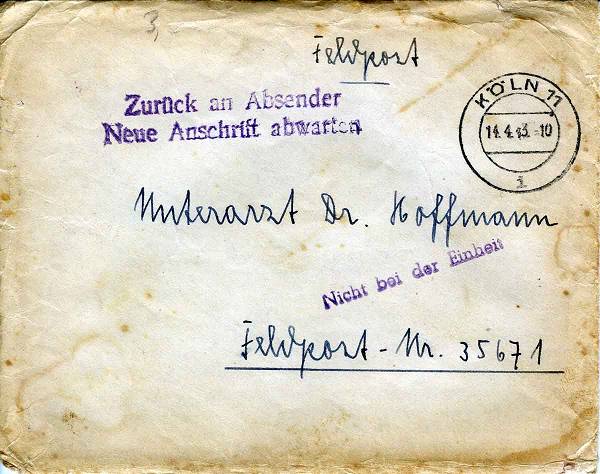 3,
Feldpost
Zurück an Absender
Neue Anschrift abwarten
KÖLN 11
14.4.43.-10
i
Unterarzt Dr. Hoffmann
Nicht bei der Einheit
Feldpost-Nr. 35671